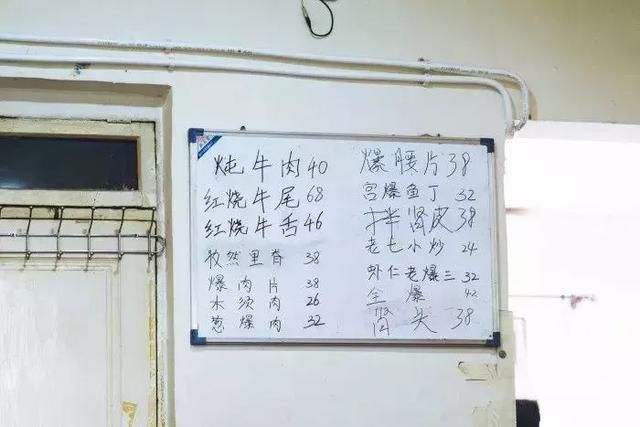 炖牛肉40
红烧牛尾68
红烧牛舌46
孜然里脊 38
爆肉片 38
木须肉 26
葱爆肉 32
爆腰片38
宫爆鱼丁 32
拌肾皮38
老七小炒 24
虾仁老爆三 32
全爆 42
闷头 38